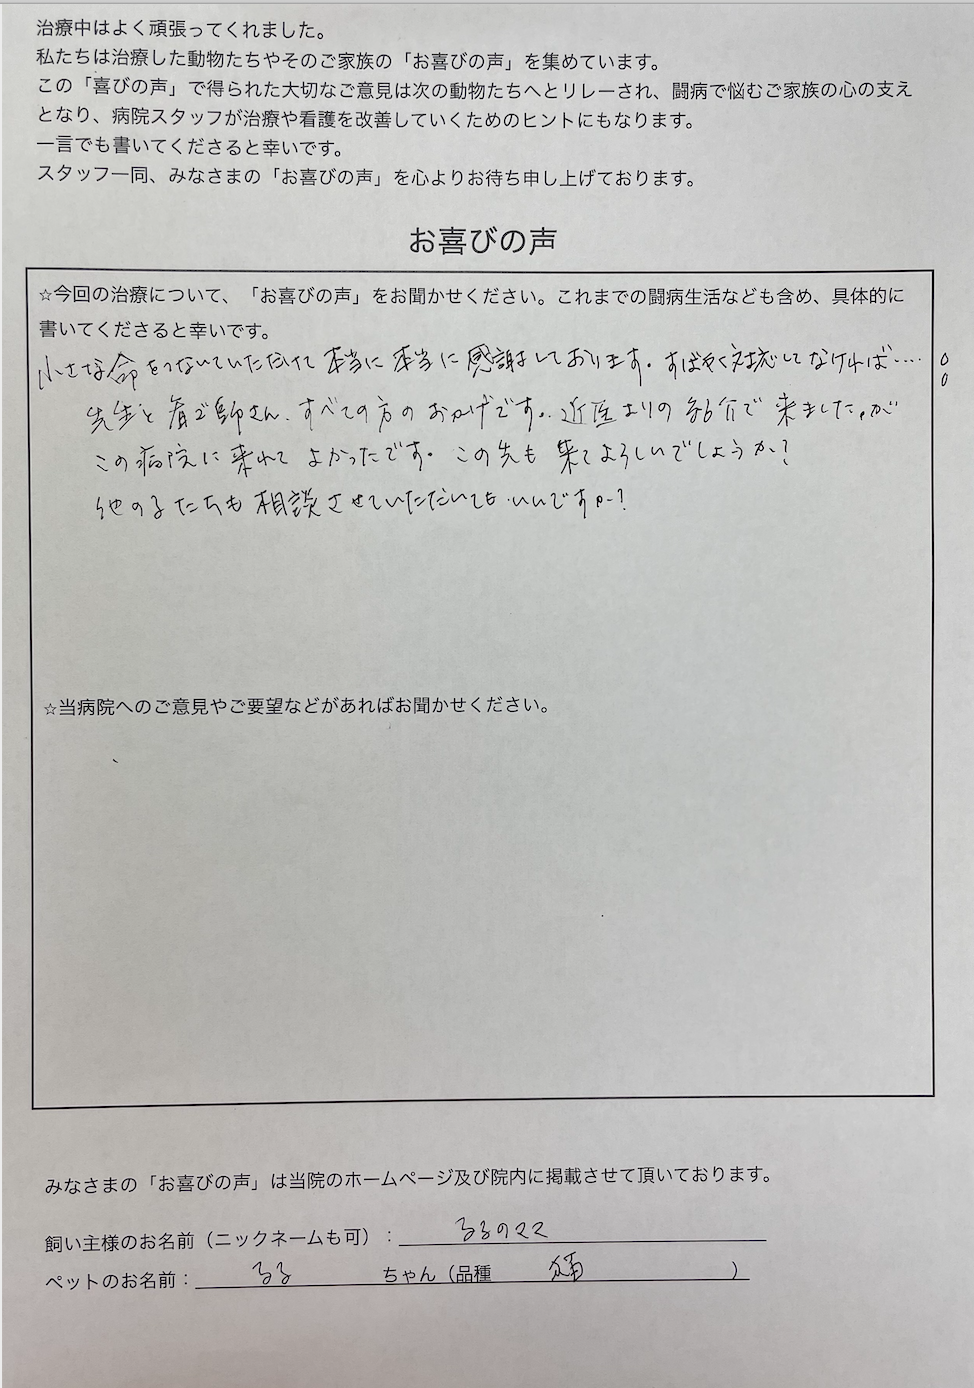 治療中はよく頑張ってくれました。
私たちは治療した動物たちやそのご家族の「お喜びの声」を集めています。
この「喜びの声」で得られた大切なご意見は次の動物たちへとリレーされ、闘病で悩むご家族の心の支え
となり、病院スタッフが治療や看護を改善していくためのヒントにもなります。
一言でも書いてくださると幸いです。
スタッフ一同、みなさまの「お喜びの声」を心よりお待ち申し上げております。
お喜びの声
☆今回の治療について、「お喜びの声」をお聞かせください。これまでの闘病生活なども含め、具体的に
書いてくださると幸いです。
小さな命をつないでいただけて本当に本当に感謝しております。すばやく対応してなければ‥‥。。
先生と看ご師さん、すべての方のおかげです。近医よりの紹介で来ました。が
この病院に来れてよかったです。この先も来てよろしいでしょうか?
他の子たちも相談させていただいてもいいですか?
☆当病院へのご意見やご要望などがあればお聞かせください。
みなさまの「お喜びの声」は当院のホームページ及び院内に掲載させて頂いております。
飼い主様のお名前(ニックネームも可):るるのママ
ペットのお名前:るる ちゃん(品種 猫 )